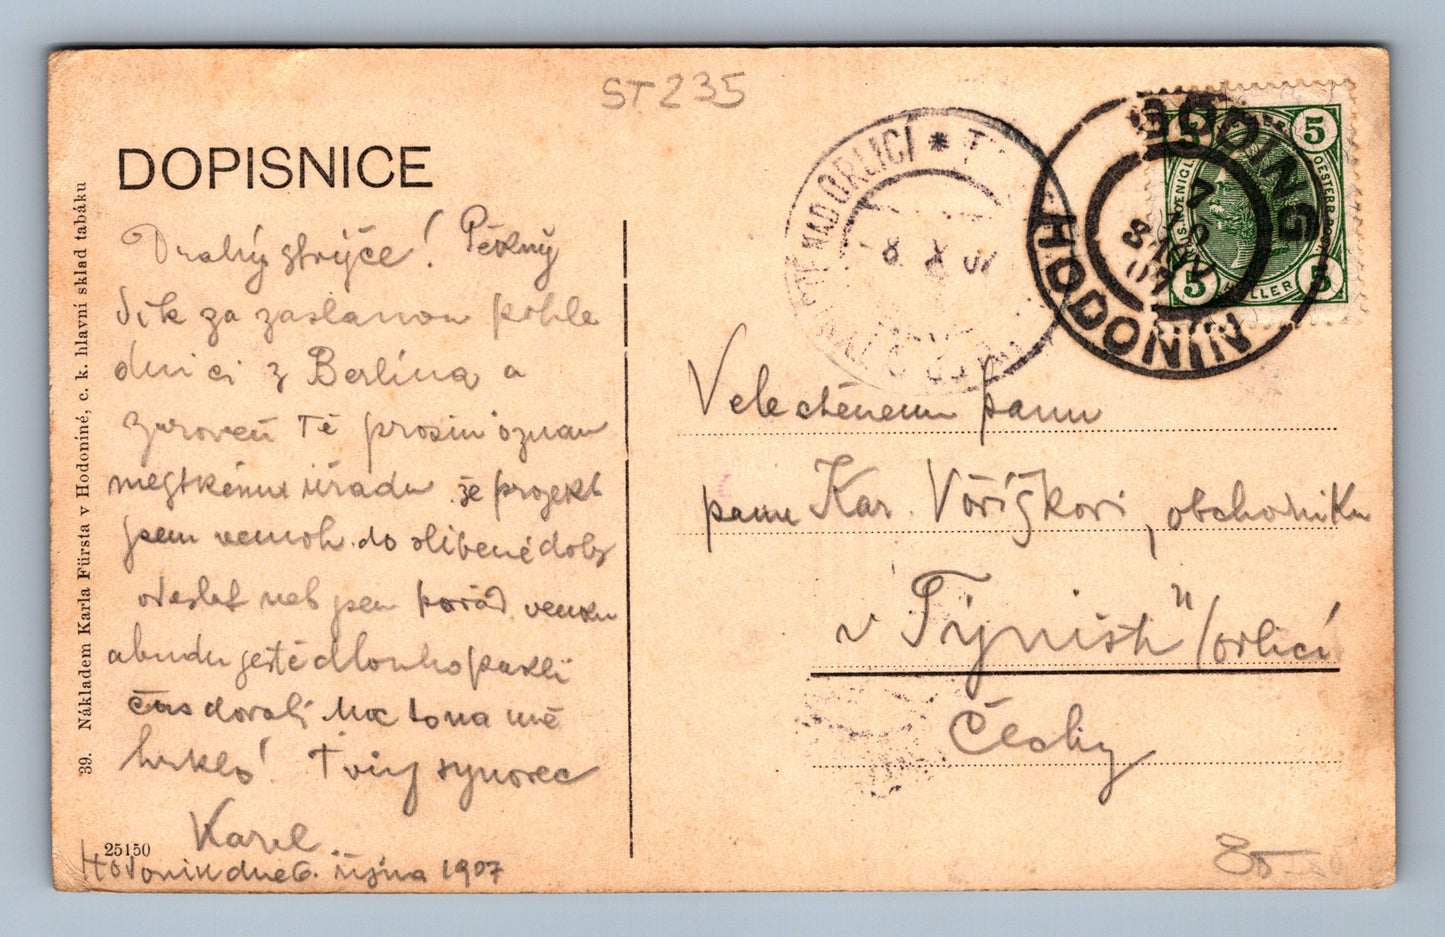 ST 235
DOPISNICE
Drahý strýče! Pěkný
dík za zaslanou pohle
dnici z Berlína a
zároveň Tě prosím oznam
městskému úřadu že projekt
jsem nemoh do slíbené doby
odeslat neb jsem pořád venku
a budu ještě dlouho pakli
čas dovolí. Moc to na mě
Tvůj synovec
Karel.
25150
Hodonín dne 6. října 1907
39. Nákladem Karla Fürsta v Hodoníně, c. k. hlavní sklad tabáku
NAD ORLICÍ * T
8 X 07
GÖDING
HODONIN
7
5 5
5 HELLER 5
Velectěnému panu
panu Kar. Voříškovi, obchodníku
v Týništi n/Orlicí
Čechy